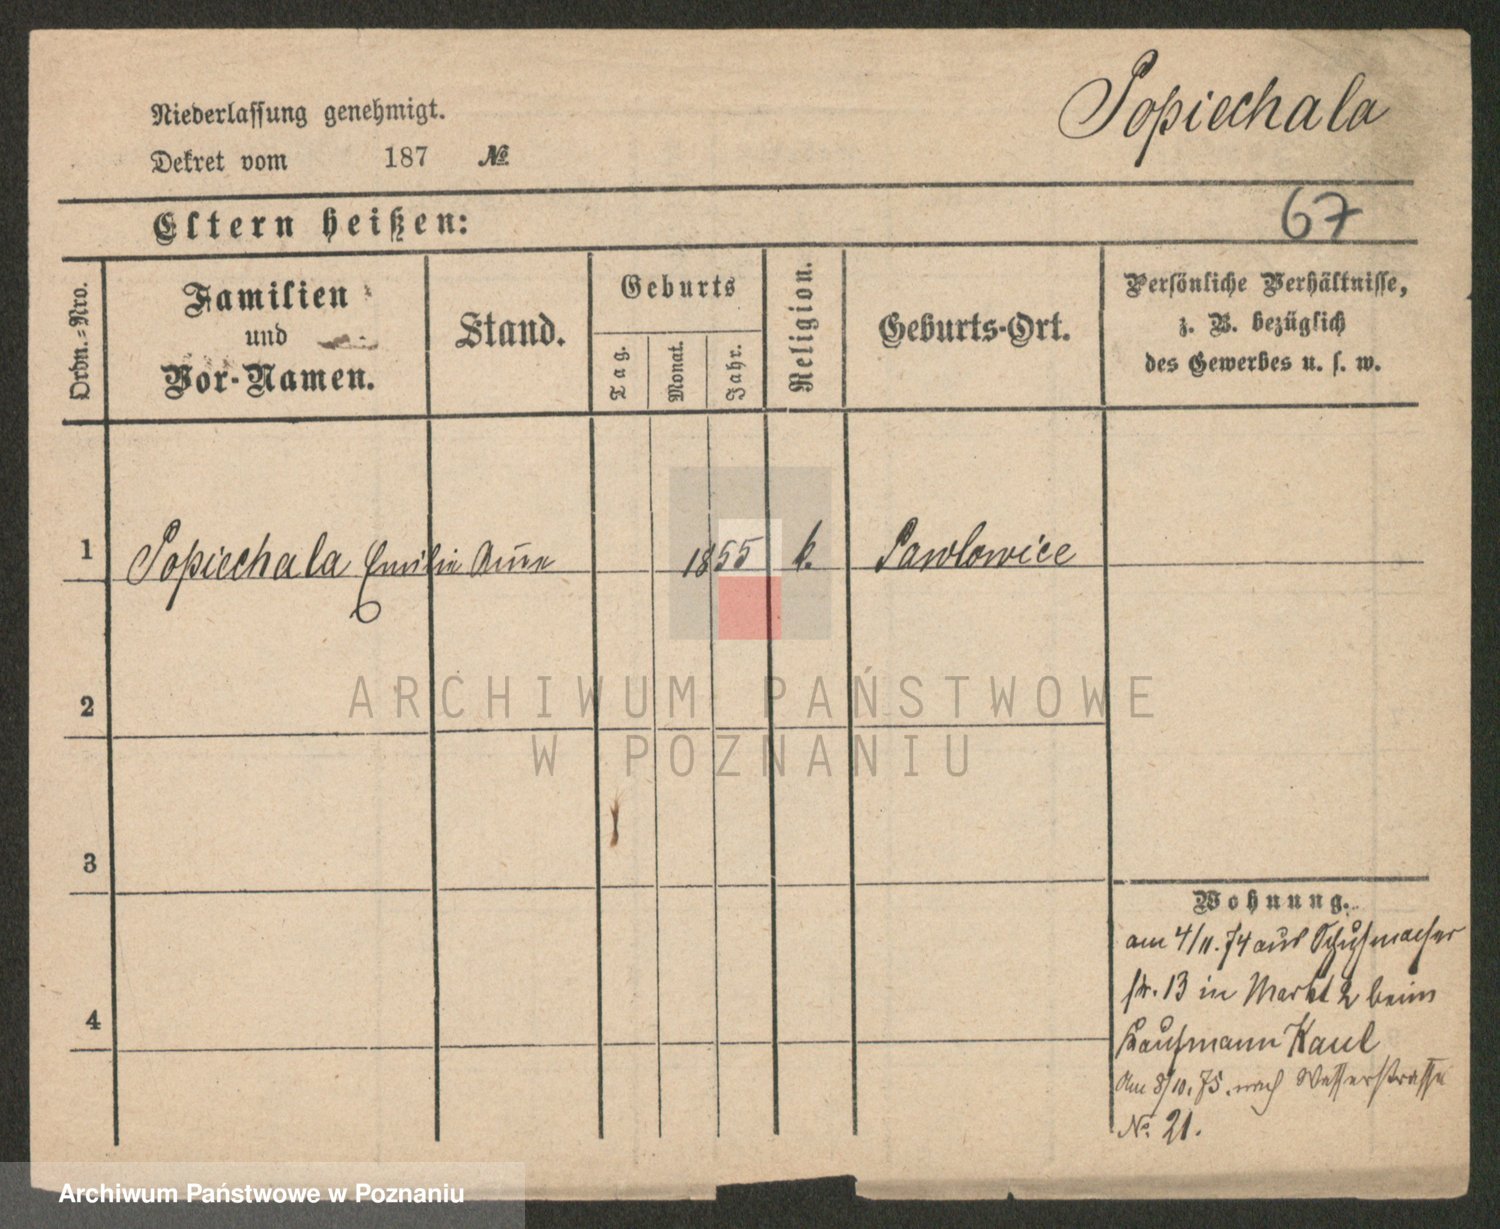 Popiechala
Niederlassung genehmigt.
Dekret vom 187 №
67
Eltern heißen:
Ordn.=Nro.
Familien
und
Vor-Namen.
Stand.
Geburts
Tag.
Monat.
Jahr.
Religion.
Geburts-Ort.
Persönliche Verhältnisse,
z. B. bezüglich
des Gewerbes u. s. w.
1 Popiechala Emilie Anna 1855 k. Pawlowice
ARCHIWUM PAŃSTWOWE
W POZNANIU
2
3
4
Wohnung.
am 4/11. 74 aus Schuhmacher
str. 13 in Markt 2 beim
Kaufmann Kaul
Am 8/10. 75. nach Wasserstrasse
No. 21.
Archiwum Państwowe w Poznaniu